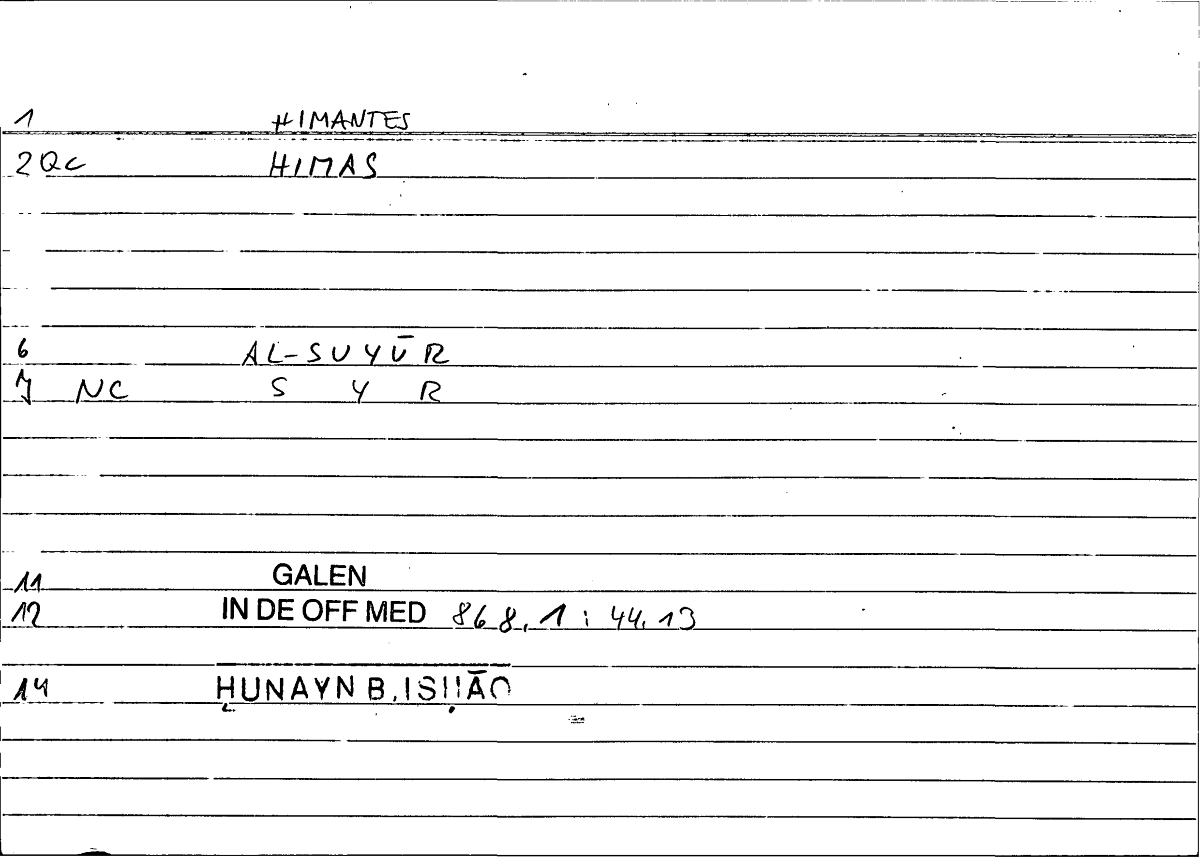 1 HIMANTES
2 QC HIMAS
6 AL-SUYŪR
7 NC S Y R
11 GALEN
12 IN DE OFF MED 868,1 : 44,13
14 ḤUNAYN B. ISḤĀQ